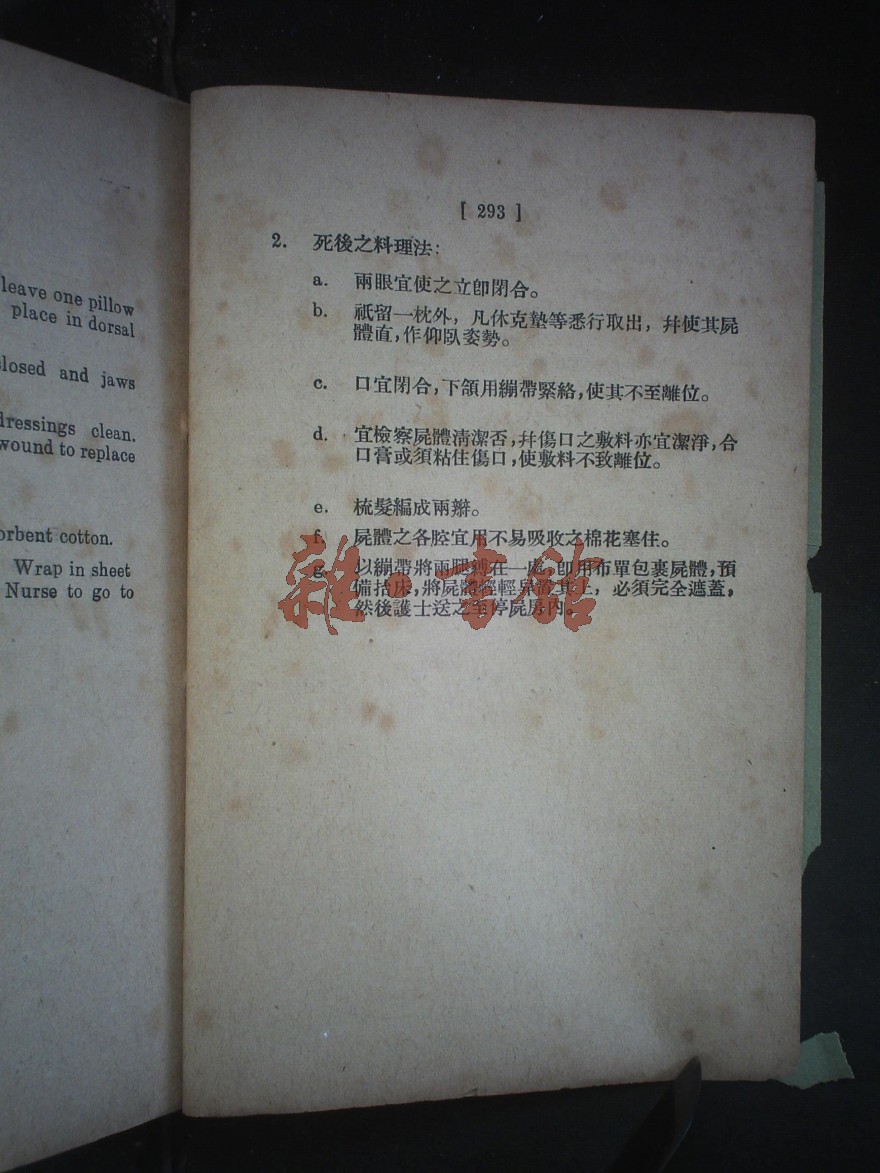 leave one pillow
place in dorsal
closed and jaws
dressings clean.
wound to replace
orbent cotton.
Wrap in sheet
Nurse to go to
[ 293 ]
2. 死後之料理法:
a. 兩眼宜使之立卽閉合。
b. 祇留一枕外，凡休克墊等悉行取出，幷使其屍
體直，作仰臥姿勢。
c. 口宜閉合，下頜用繃帶緊絡，使其不至離位。
d. 宜檢察屍體清潔否，幷傷口之敷料亦宜潔淨，合
口膏或須粘住傷口，使敷料不致離位。
e. 梳髮編成兩辮。
f. 屍體之各腔宜用不易吸收之棉花塞住。
g. 以繃帶將兩腿縛在一處，卽用布單包裹屍體，預
備抬床，將屍體輕輕舁置其上，必須完全遮蓋，
然後護士送之至停屍房內。
雜·書館